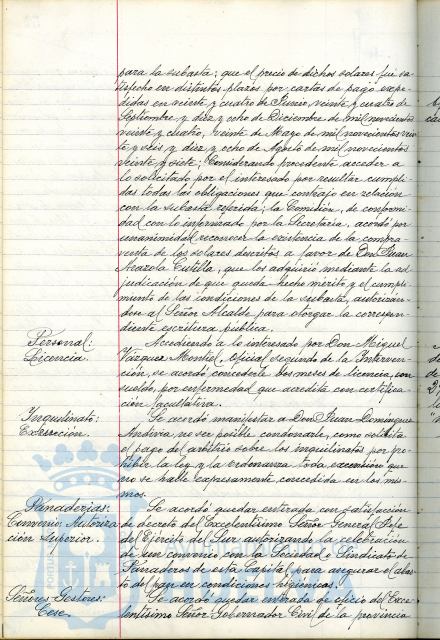 para la subasta; que el precio de dichos solares fué sa-
tisfecho en distintos plazos por cartas de pago expe-
didas en veinte y cuatro de Junio, veinte y cuatro de
Septiembre y diez y ocho de Diciembre de mil novecientos
veinte y cuatro, veinte de Mayo de mil novecientos vein-
te y seis y diez y ocho de Agosto de mil novecientos
veinte y siete; Considerando procedente acceder a
lo solicitado por el interesado por resultar cumpli-
das todas las obligaciones que contrajo en relación
con la subasta referida; la Comisión, de conformi-
dad con lo informado por la Secretaría, acordó por
unanimidad reconocer la existencia de la compra-
venta de los solares descritos a favor de Don Juan
Castilla, que los adquirió mediante la ad-
judicación de que queda hecho mérito y el cumpli-
miento de las condiciones de la subasta, autorizán-
dose al Señor Alcalde para otorgar la correspon-
diente escritura pública.
Personal:
Licencia.
Accediendo a lo interesado por Don Miguel
Vázquez Montiel, Oficial segundo de la Interven-
ción, se acordó concederle dos meses de licencia, con
sueldo, por enfermedad que acredita con certifica-
ción facultativa.
Inquilinato:
Exención.
Se acordó manifestar a Don Juan Domínguez
no ser posible condonarle, como solicita
el pago del arbitrio sobre los inquilinatos por pro-
hibir la ley y la ordenanza toda exención que
no se halle expresamente concedida en los mis-
mos.
Panaderías:
Convenio. Autoriza-
ción superior.
Se acordó quedar enterada con satisfacción
de decreto del Excelentísimo Señor General Jefe
del Ejército del Sur autorizando la celebración
de un convenio con la Sociedad o Sindicato de
Panaderos de esta Capital para asegurar el abas-
to del pan en condiciones higiénicas.
Señores Gestores:
Cese.
Se acordó quedar enterada de oficio del Exce-
lentísimo Señor Gobernador Civil de la provincia